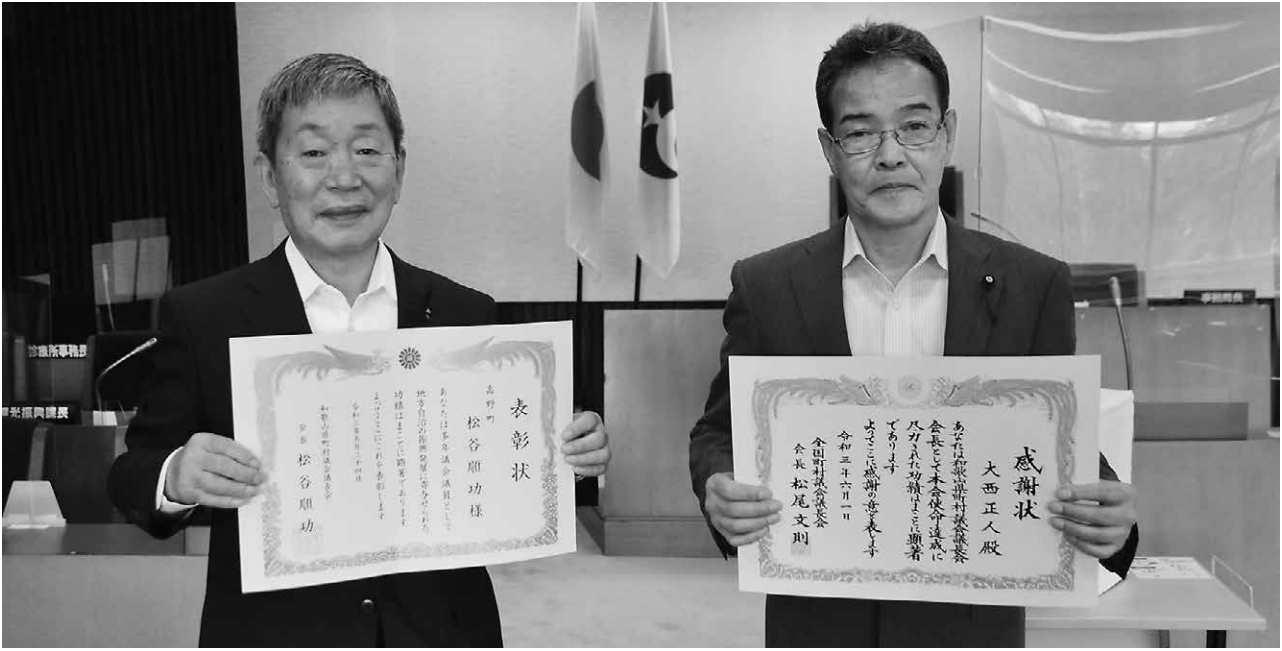 表彰状
高野町
松谷順功様
あなたは多年議会議員として
地方自治の振興発展に寄与せられた
功績はまことに顕著であります
よってここにこれを表彰します
令和三年五月二十四日
和歌山県町村議会議長会
会長 松谷順功
感謝状
大西正人殿
あなたは和歌山県町村議会議長会
会長として本会使命達成に
尽力された功績はまことに顕著
であります
よってここに感謝の意を表します
令和三年六月一日
全国町村議会議長会
会長 松尾文則
診療所事務長
観光振興課長